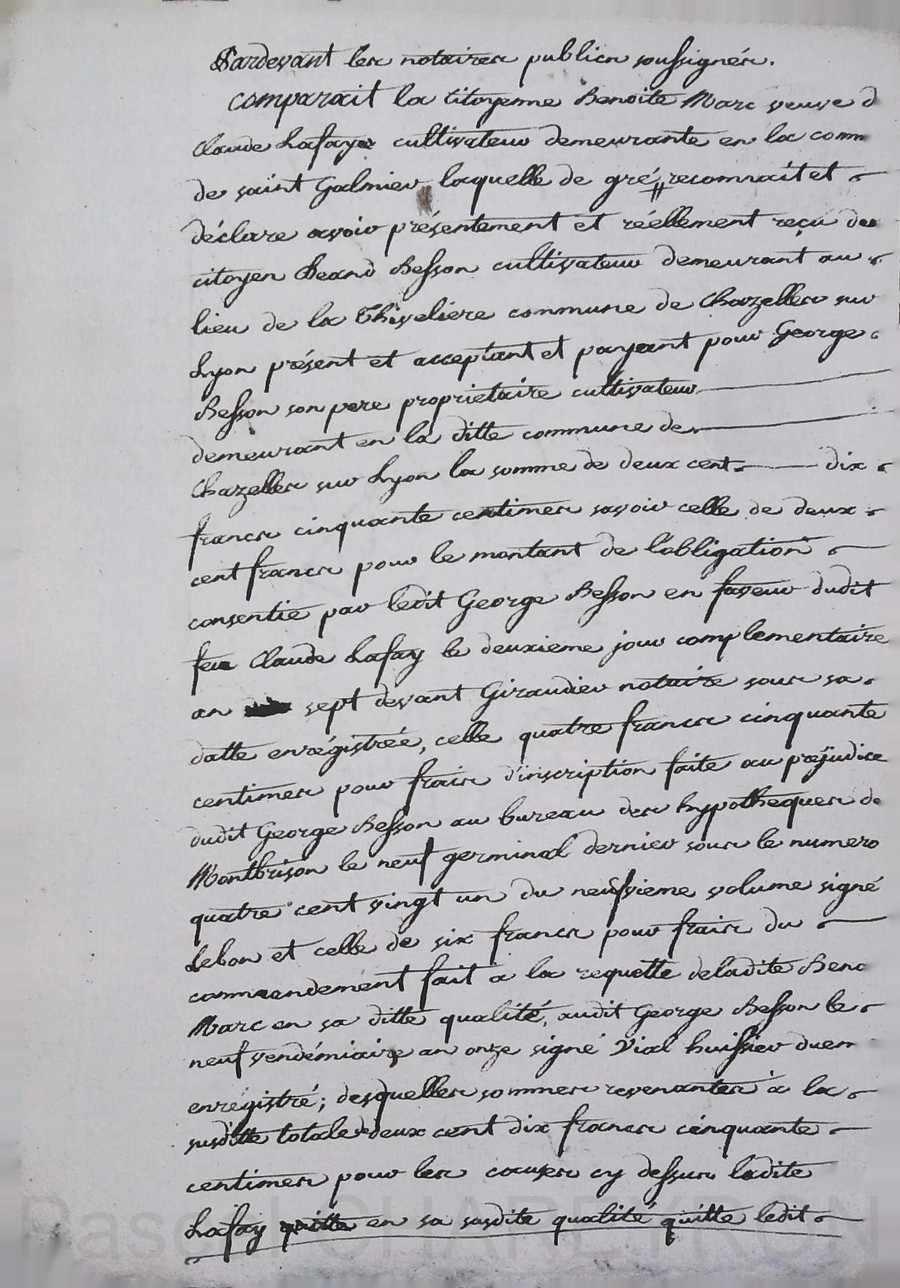 Pardevant les notaires publics soussignés.
comparait la citoyenne Benoite Marc veuve d
Claude Lafaye cultivateur demeurante en la comm
de saint Galmier laquelle de gré reconnait et
déclare avoir présentement et réellement reçu des
citoyen Besson cultivateur demeurant au
lieu de la Thiveliere commune de Chazelles sur
Lyon présent et acceptant et payant pour George
Besson son pere proprietaire cultivateur
demeurant en la ditte commune de
Chazelles sur Lyon la somme de deux cent dix
francs cinquante centimes savoir celle de deux
cent francs pour le montant de l'obligation
consentie par ledit George Besson en faveur dudit
feu Claude Lafay le deuxieme jour complementaire
an sept devant Giraudier notaire sous sa
datte enrégistrée, celle quatre francs cinquante
centimes pour frais d'inscription faite au préjudice
dudit George Besson au bureau des hypotheques de
Montbrison le neuf germinal dernier sous le numero
quatre cent vingt un du neufvieme volume signé
Lebon et celle de six francs pour frais du
commandement fait a la requette deladite Beno
Marc en sa ditte qualité, audit George Besson le
neuf vendémiaire an onze signé Vial huissier duem
enrégistré; desquelles sommes revenantes à la
susditte totale de deux cent dix francs cinquante
centimes pour les causes cy dessus ladite
Lafay quitte en sa susdite qualité quitte ledit
Pascal CHAREYRON